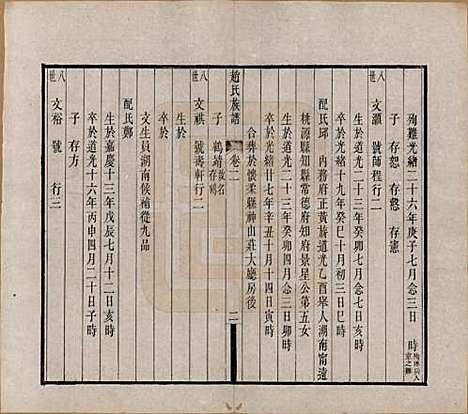 殉難光緒二十六年庚子七月念三日 時 殉聯兵入京之難
子 存恕 存慤 存憲
八世 文灝 號師程行二
生於道光二十三年癸卯四月念七日亥時
卒於光緒十九年癸巳十月初三日子時
配氏邱 內務府正黃旗道光乙酉舉人湖南甯遠
桃源縣知縣常德府知府景星公第五女
生於道光二十三年癸卯四月念三日卯時
卒於光緒廿七年辛丑十月十四日寅時
合葬於懷柔縣神山莊大廳房後
趙氏族譜 卷二 二
子 鶴靖 故名存鴻
八世 文祺 號壽軒行二
生於
卒於
文生員湖南候補從九品
配氏鄭
生於嘉慶十三年戊辰七月十二日亥時
卒於道光十六年丙申四月二十日子時
子 存方
八世 文裕 號 行三